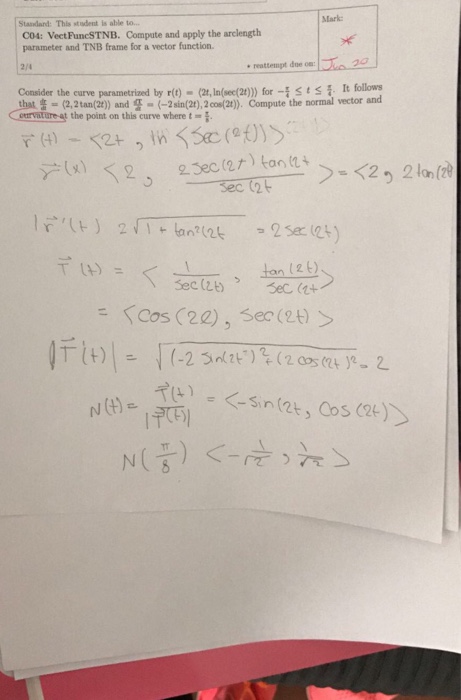 Standard: This student is able to...
Mark:
C04: VectFuncSTNB. Compute and apply the arclength
parameter and TNB frame for a vector function.
*
2/4
• reattempt due on: Jun 20
Consider the curve parametrized by r(t) = (2t, ln(sec(2t))) for -π/4 ≤ t ≤ π/4. It follows
that dr/dt = (2, 2 tan(2t)) and dT/dt = (-2 sin(2t), 2 cos(2t)). Compute the normal vector and
curvature at the point on this curve where t = π/8.
r⃗(t) = <2t, ln<sec(2t))>
r⃗'(x) <2, 2sec(2t) tan(2t / sec(2t > = <2, 2tan(2t)
|r⃗'(t) 2√1 + tan²(2t = 2sec(2t)
T⃗(t) = < 1/sec(2t), tan(2t)/sec(2t >
= <cos(2t), sec(2t)>
|T⃗'(t)| = √(-2 sin(2t)² + (2cos(2t)² = 2
N(t) = T⃗(t)/|T⃗(t)| = <-sin(2t, cos(2t)>
N(π/8) <-1/√2, 1/√2>